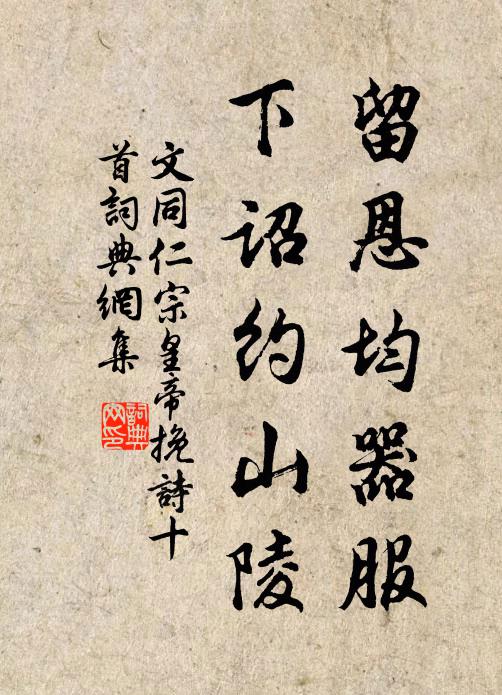 留恩均器服
下詔約山陵
文同仁宗皇帝挽詩十
首詞典網集
詞典
网印